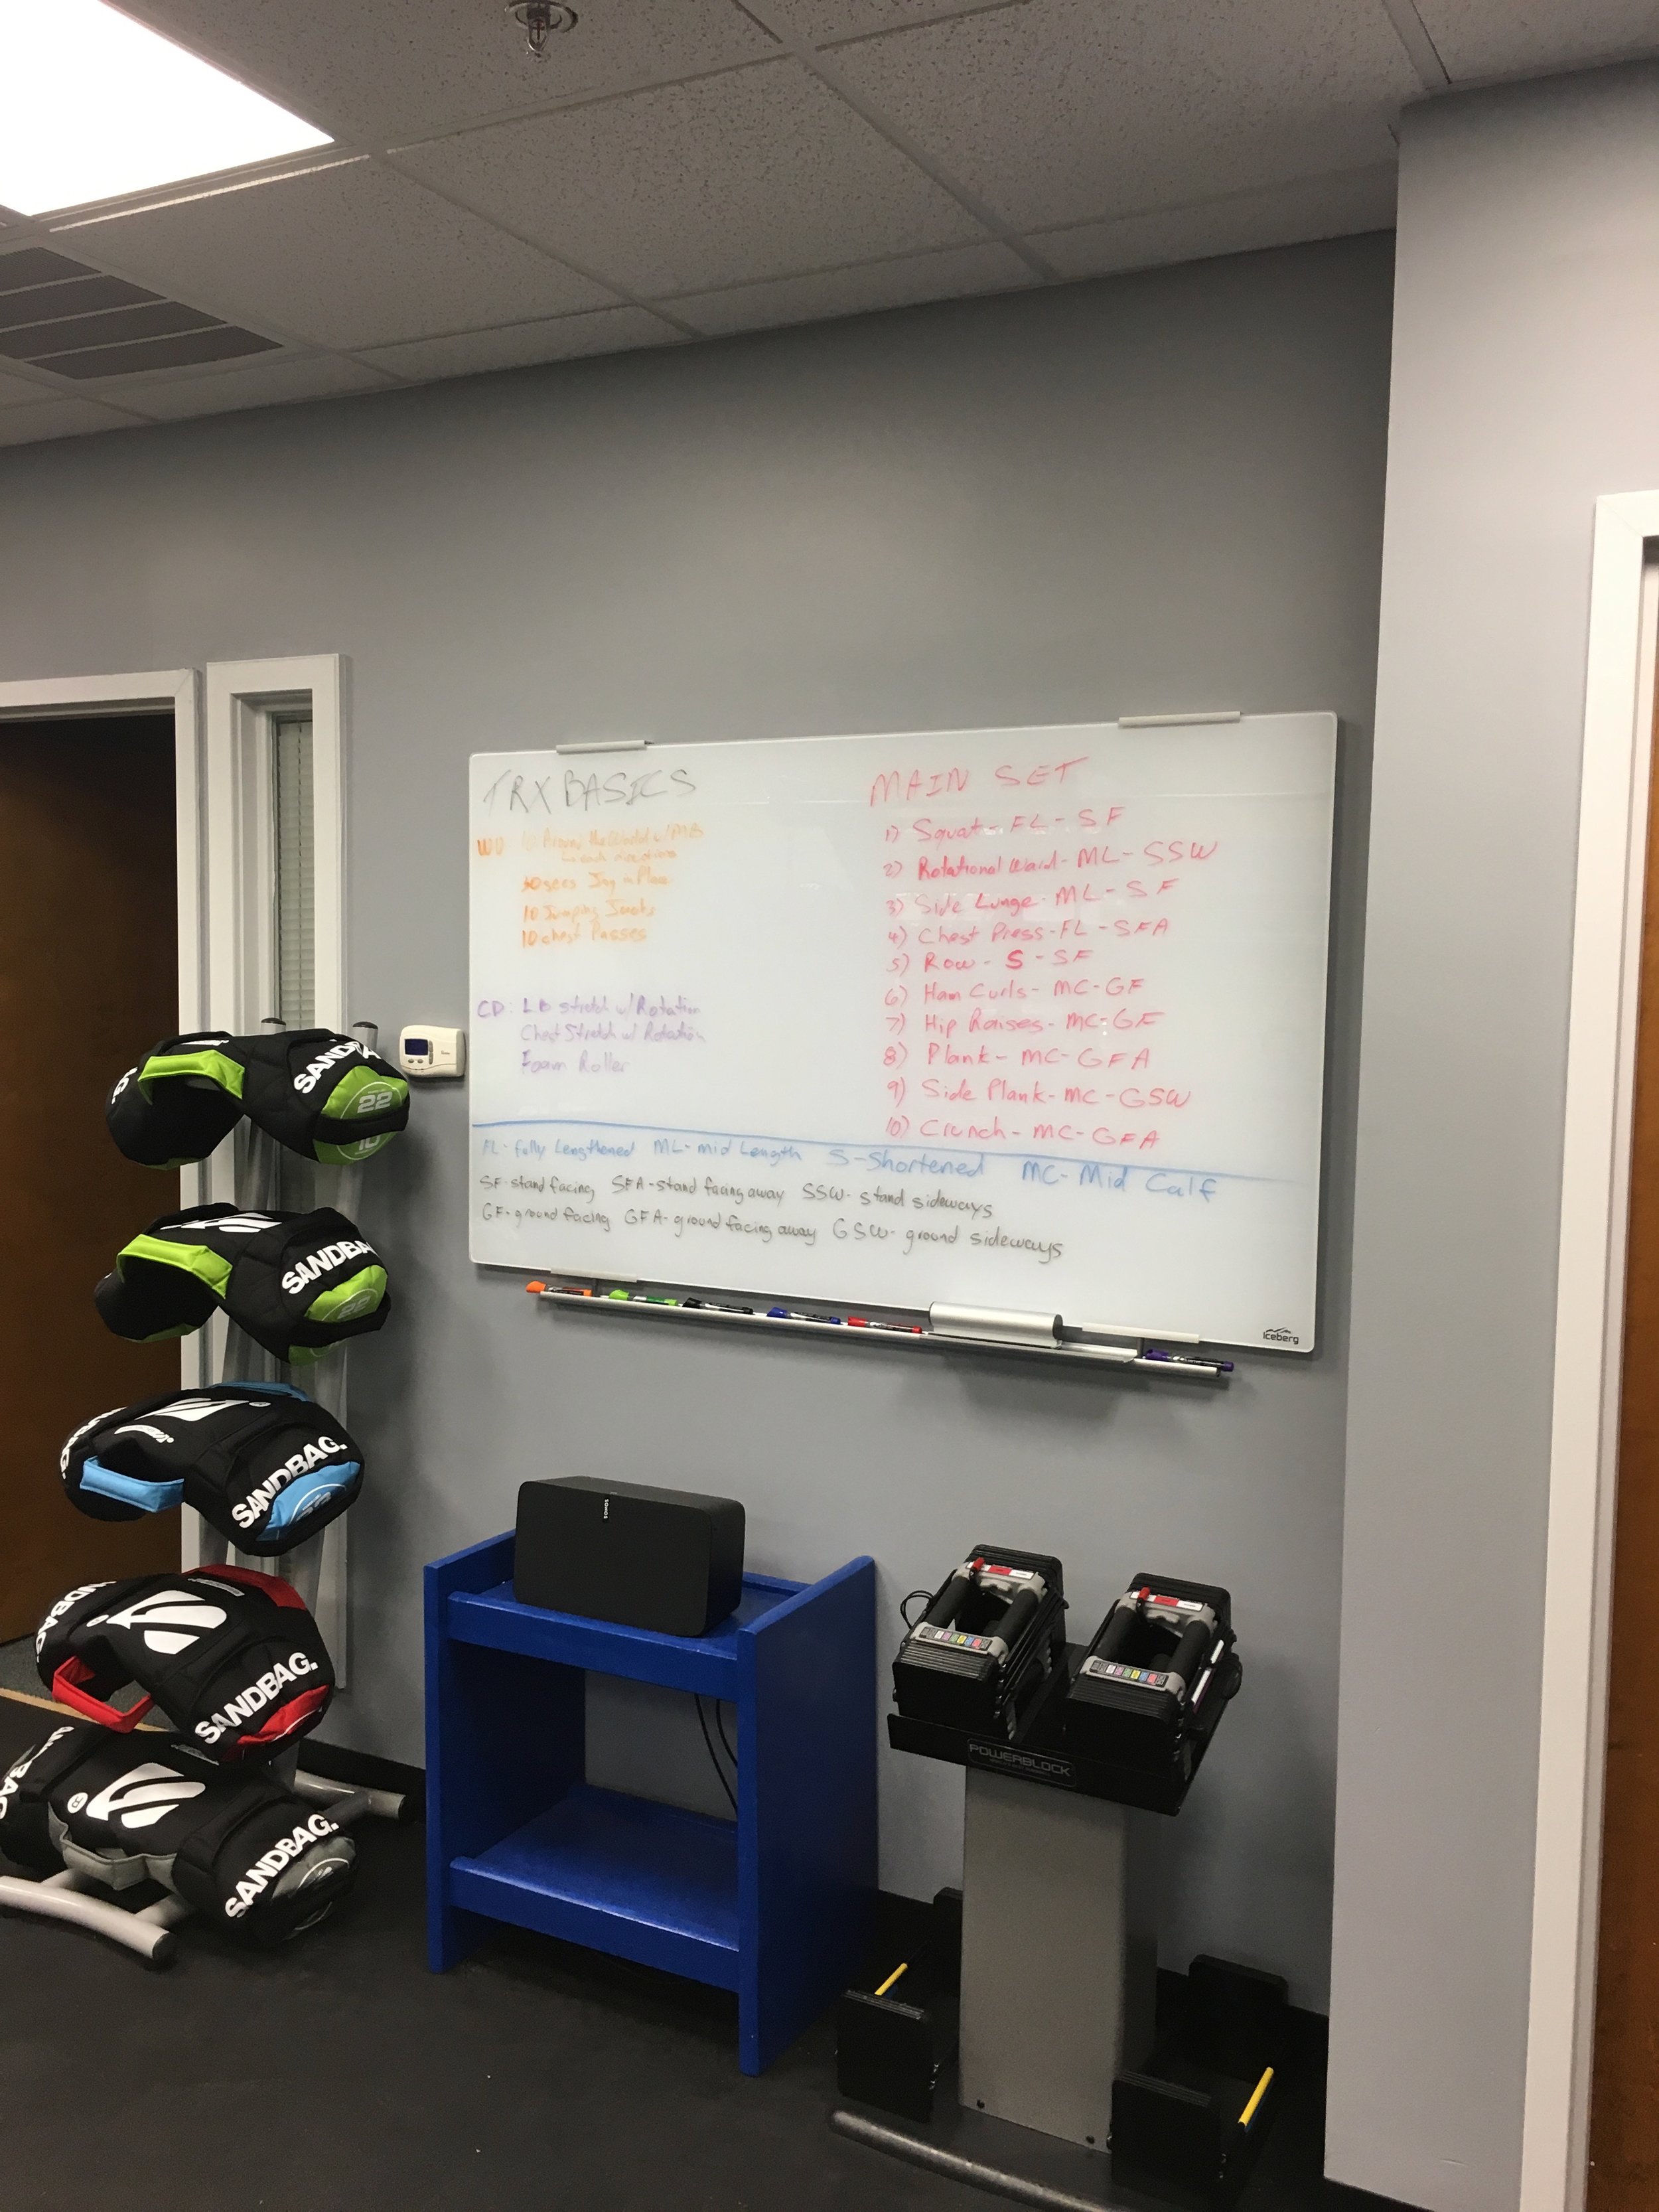 TRX BASICS
WU: 10 Around the World w/MB
30 secs Jog in Place
10 Jumping Jacks
10 chest Passes
CD: LB stretch w/Rotation
Chest Stretch w/ Rotation
Foam Roller
MAIN SET
1) Squat - FL - SF
2) Rotational Ward - ML - SSW
3) Side Lunge - ML - SF
4) Chest Press - FL - SFA
5) Row - S - SF
6) Ham Curls - MC - GF
7) Hip Raises - MC - GF
8) Plank - MC - GFA
9) Side Plank - MC - GSW
10) Crunch - MC - GFA
FL - fully Lengthened ML - mid Length S - Shortened MC - Mid Calf
SF - stand facing SFA - stand facing away SSW - stand sideways
GF - ground facing GFA - ground facing away GSW - ground sideways
iceberg
SANDBAG.
22
10
SANDBAG.
22
SANDBAG.
SANDBAG.
SANDBAG.
SONOS
POWERBLOCK